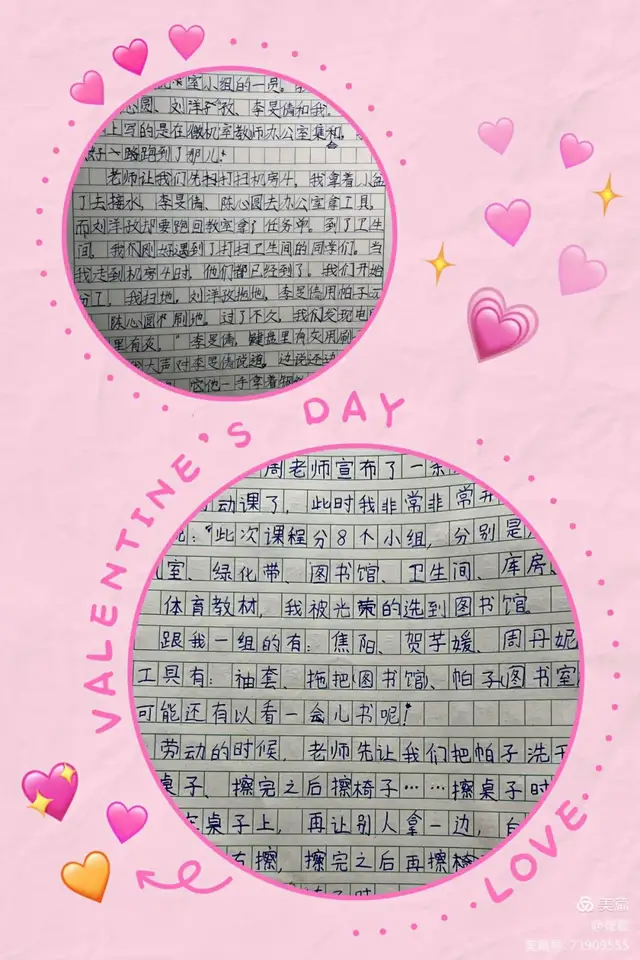 室小组的一员。
心圆、刘洋孜、李昱倩和我。
上写的是在微机室教师办公室集和，
好一路跑到了那儿！
老师让我们先扫打扫机房4。我拿着小盆
了去接水，李昱倩、陈心圆去办公室拿工具，
而刘洋孜却要跑回教室拿了任务单。到了卫生
间，我们刚好遇到了打扫卫生间的同学们。当
我走到机房4时，他们都已经到了。我们开始
分了，我扫地，刘洋孜拖地，李昱倩用帕子
陈心圆刷地。过了不久，我们发现电
里有灰。“李昱倩，键盘里有灰用刷
人声对李昱倩说道。边说还边
它他一手拿着
VALENTINE'S DAY
周老师宣布了一条
动课了，此时我非常非常开
说：“此次课程分8个小组，分别是
室、绿化带、图书馆、卫生间、库房
体育教材，我被光荣的选到图书馆。
跟我一组的有：焦阳、贺芋媛、周丹妮
工具有：袖套、拖把(图书馆)、帕子(图书室
可能还有以看一会儿书呢！
劳动的时候，老师先让我们把帕子洗干
桌子、擦完之后擦椅子……擦桌子时
桌子上，再让别人拿一边，
有擦，擦完之后再擦椅
LOVE
美篇
美篇号 71909555